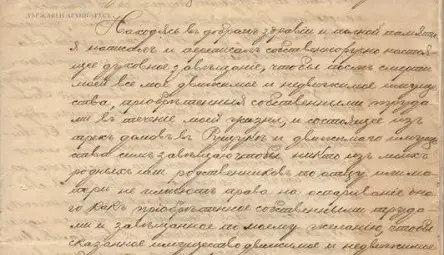 ДЪРЖАВЕН АРХИВ - РУСЕ
Находясь въ добромъ здравіи и полной памяти
я написалъ и переписалъ собственноручно настоя-
щее духовное завѣщаніе, чтобы послѣ смерти
моей все мое движимое и недвижимое имуще-
ство, пріобрѣтенный собственными труда-
ми въ теченіе моей жизни, и состоящее изъ
трехъ домовъ въ Рущукѣ и движимаго имуще-
ства симъ завѣщаю чтобы никто изъ моихъ
родныхъ или родственниковъ по отцу или ма-
тери не имѣютъ права на оспариваніе он-
го какъ пріобрѣтенное собственными труда-
ми и завѣщанное по моему желанію, чтобы
сказанное имущество движимое и недвижимое